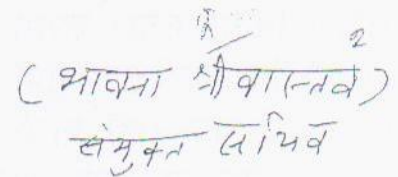 (भावना श्रीवास्तव)
संयुक्त सचिव